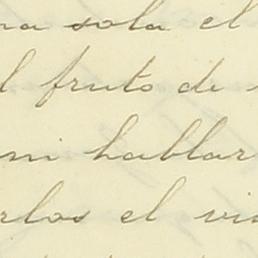 na sola el
l fruto de
mi hablar
rlos el vi